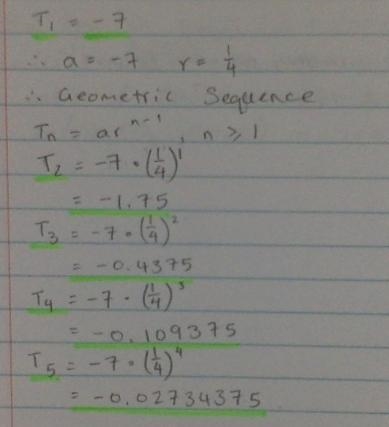 T₁ = -7
∴ a = -7 r = 1/4
∴ Geometric Sequence
Tn = arⁿ⁻¹, n ⩾ 1
T₂ = -7 • (1/4)¹
= -1.75
T₃ = -7 • (1/4)²
= -0.4375
T₄ = -7 • (1/4)³
= -0.109375
T₅ = -7 • (1/4)⁴
= -0.02734375